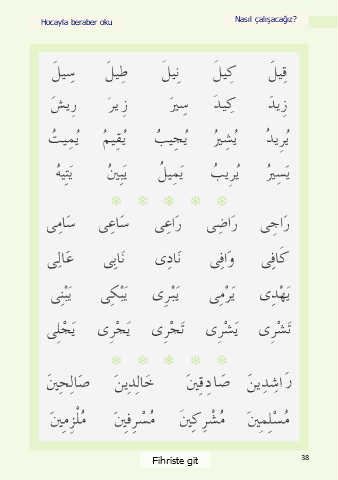 Hocayla beraber oku
Nasıl çalışacağız?
قِيلَ كِيلَ نِيلَ طِيلَ سِيلَ
زِيدَ كِيدَ سِيرَ زِيرَ شِيرَ
يُرِيدُ يُشِيرُ يُجِيبُ يُقِيمُ يُمِيتُ
يَسِيرُ يُرِيبُ يَمِيلُ يَبِينُ يَتِيهُ
رَاجِى رَاضِى رَاعِى سَاعِى سَامِى
كَافِى وَافِى نَادِى نَابِى عَالِى
يَهْدِى يَرْمِى يَبْرِى يَبْكِى يَبْنِى
تَشْرِى يَشْرِى تَجْرِى يَجْرِى يَجْلِى
رَاشِدِينَ صَادِقِينَ خَالِدِينَ صَالِحِينَ
مُسْلِمِينَ مُشْرِكِينَ مُسْرِفِينَ مُلْزِمِينَ
Fihriste git
38